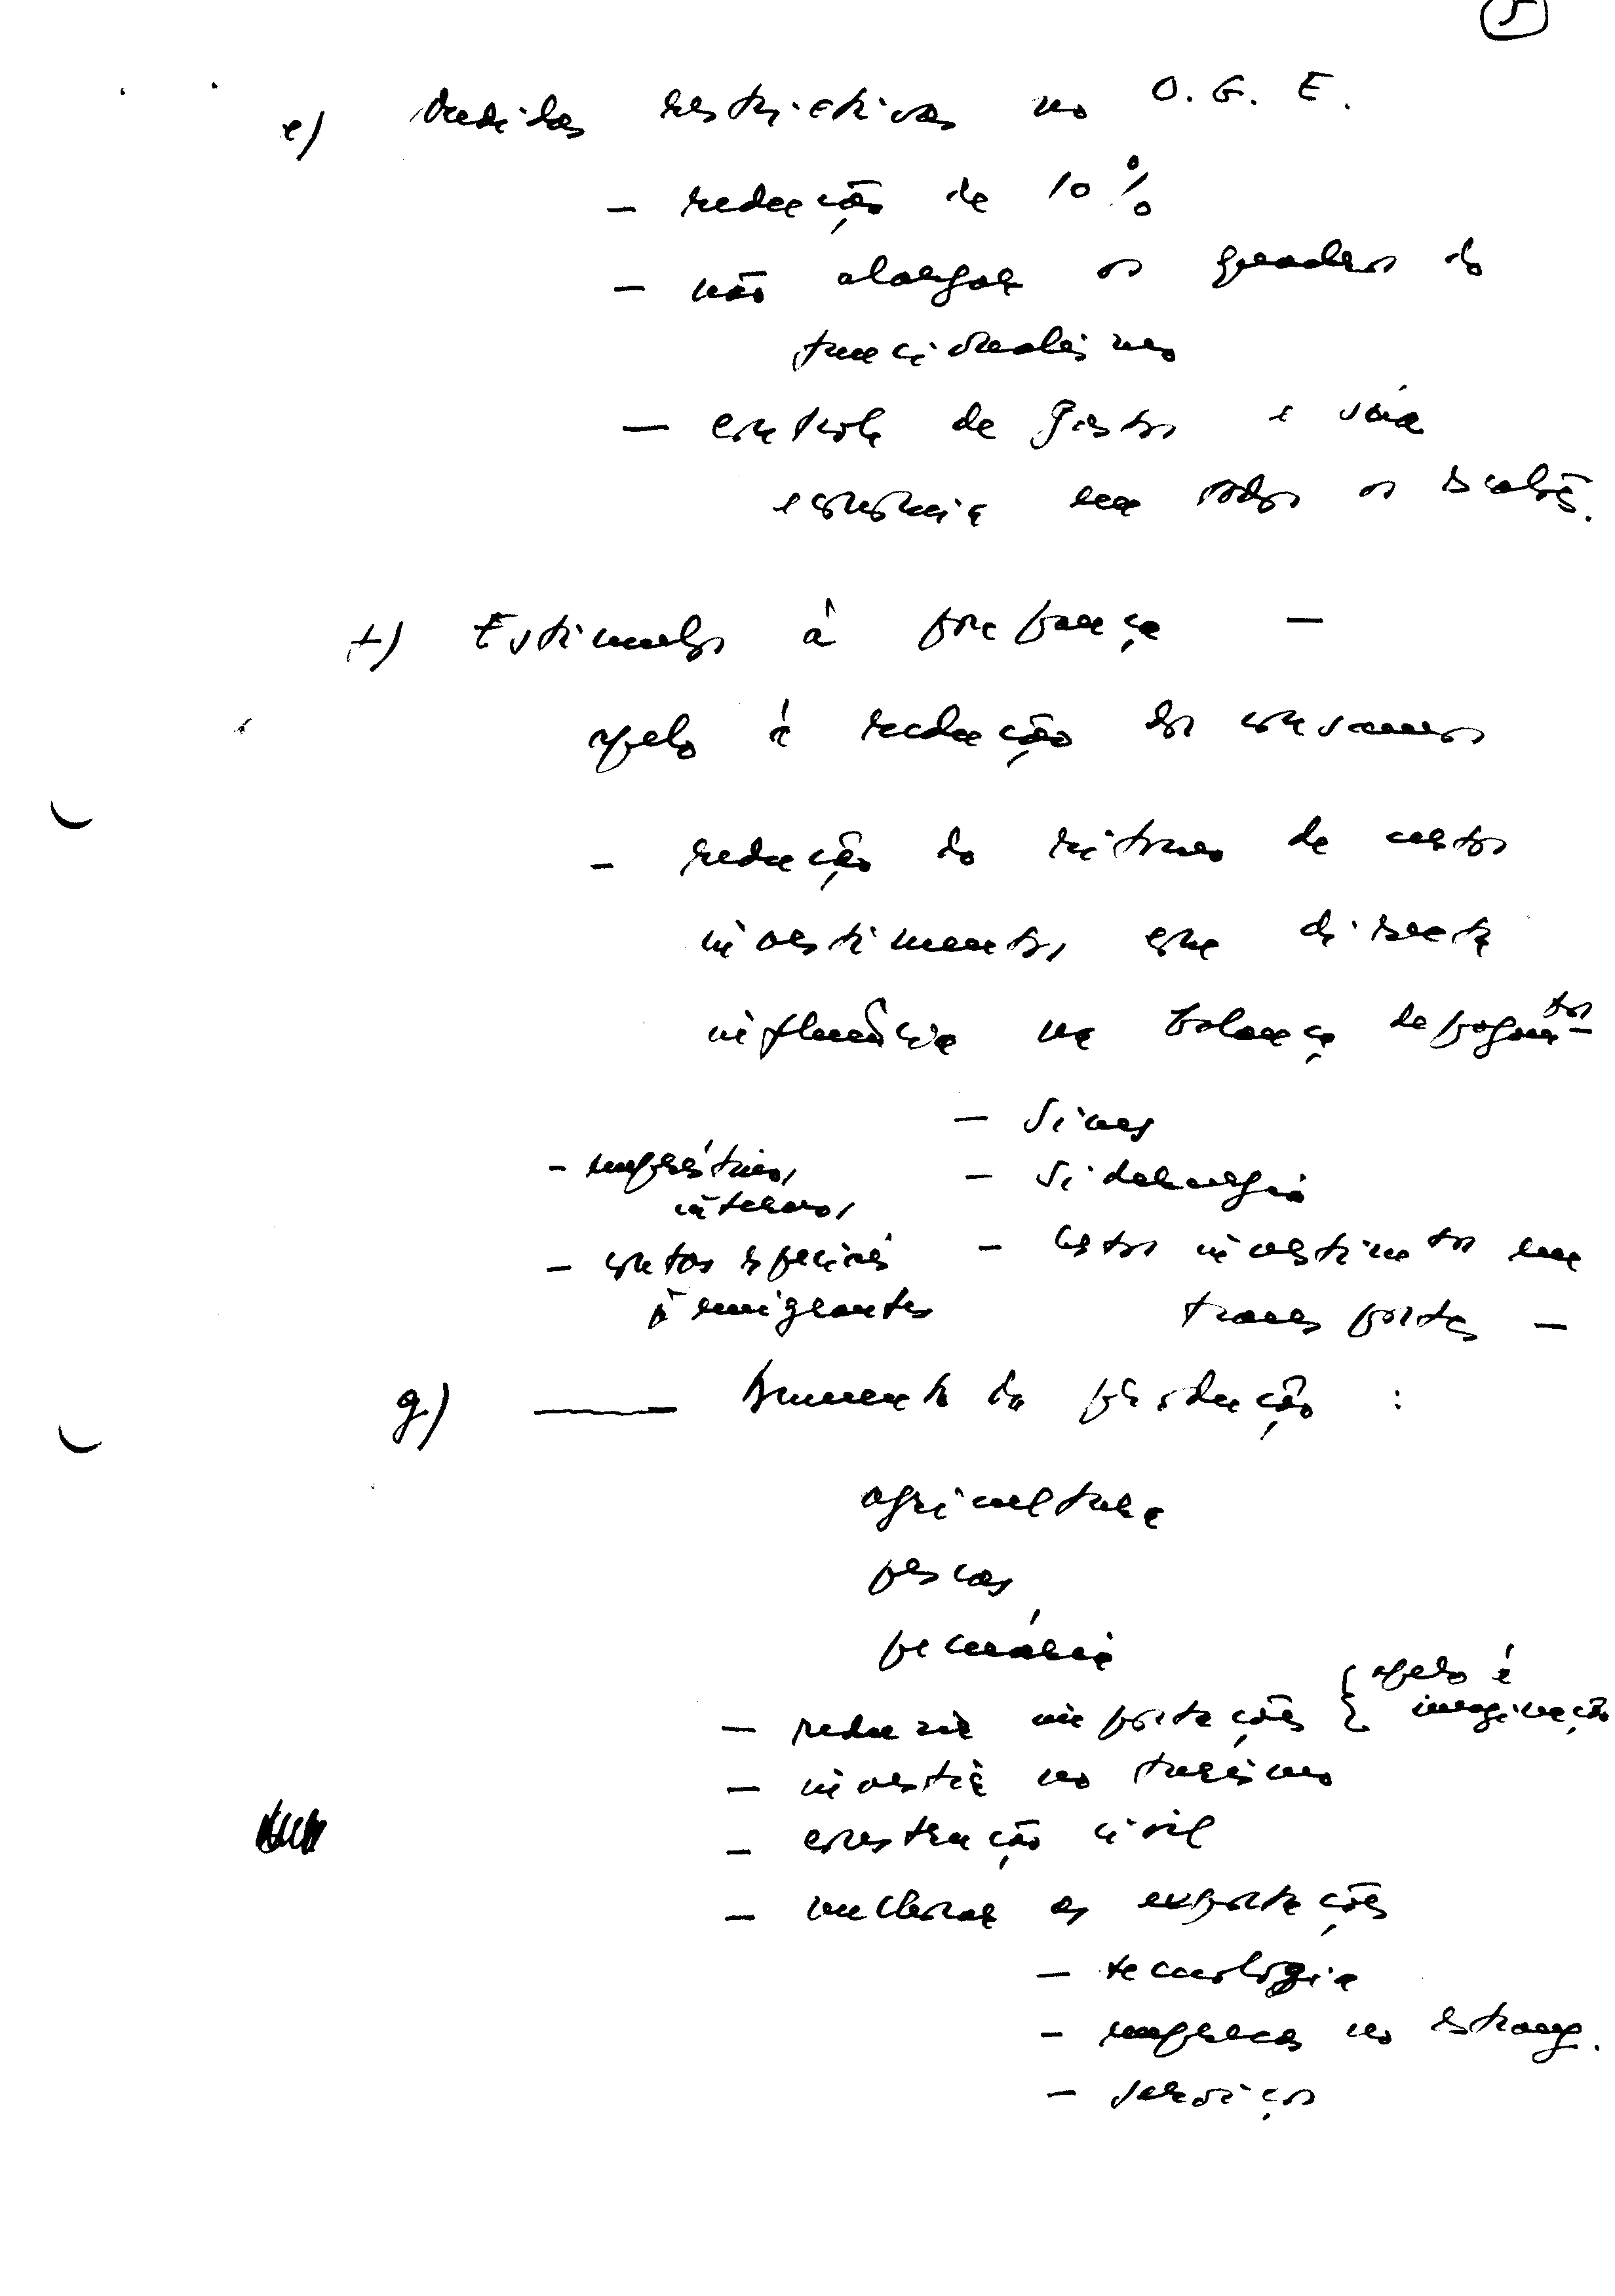 5
e) Medidas restrictivas no O. G. E.
- redução de 10%
- não alargar os quadros do
funcionalismo
- controle de gastos e
economia em todos os escalões.
f) Estímulos à poupança -
apelo à redução dos consumos
- redução do ritmo de certos
investimentos, com directa
influência na balança de pagamtos -
- Sines
- Siderurgia
- certos investimtos em
transportes -
- empréstimos
internos,
- contas especiais
à emigrantes
g) — Aumento da produção :
agricultura
pescas
pecuária
- reduzir importações { apelo à
imaginação
- investir no turismo
- construção civil
- melhorar as exportações
- tecnologia
- empresas no estrang.
- serviços